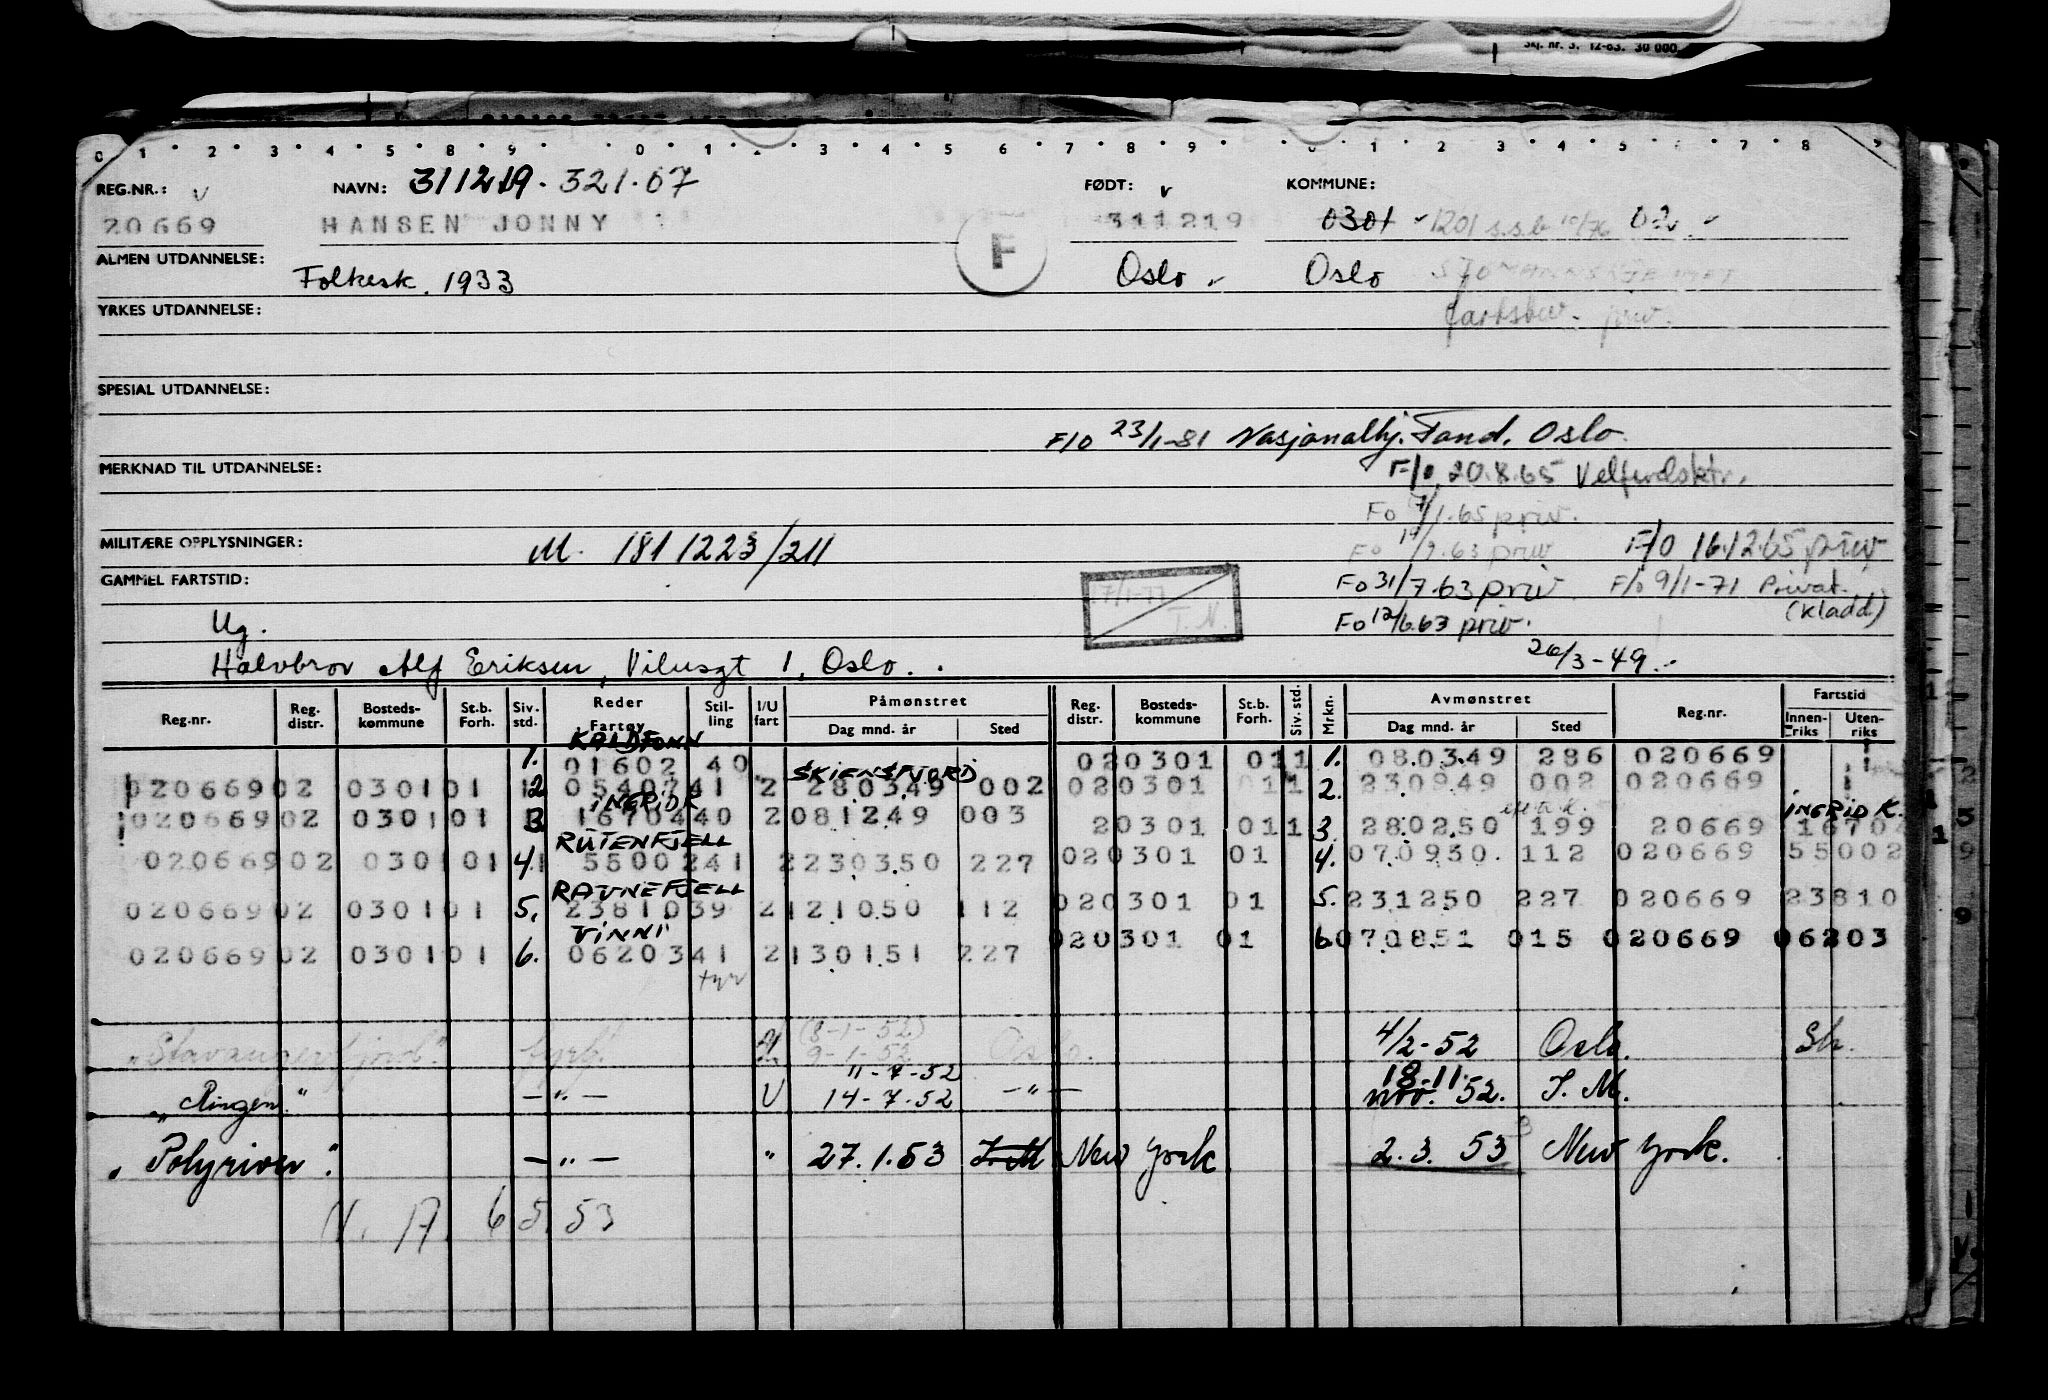 Skj. nr. 3. 12-63. 30 000.
REG.NR.: v NAVN: 311219. 321.07 FØDT: v KOMMUNE:
20669 HANSEN JONNY F 311219 0301 1201 s.s.b 10/76
ALMEN UTDANNELSE: Folkesk. 1933 Oslo Oslo
YRKES UTDANNELSE: priv.
SPESIAL UTDANNELSE:
F/O 23/1-81 Nasjonalhj. Fond. Oslo.
MERKNAD TIL UTDANNELSE: F/o 20.8.65
Fo 7/1.65 priv.
MILITÆRE OPPLYSNINGER: M. 1811223/211 priv F/O 16.12.65 priv
GAMMEL FARTSTID: Fo 31/7.63 priv F/o 9/1-71 Privat.
(kladd)
Ug. Fo 12/6.63 priv.
26/3-49.
Halvbror Alf Eriksen, Vilusgt 1, Oslo.
Reg.nr. Reg. distr. Bosteds-kommune St.b. Forh. Siv. std. Reder Fartøy Stil-ling I/U fart Påmønstret Dag mnd. år Sted Reg. distr. Bosteds-kommune St.b. Forh. Siv. std. Mrkn. Avmønstret Dag mnd. år Sted Reg.nr. Fartstid Innen-riks Uten-riks
KALDFONN
1. 01602 40 020301 011 1. 080349 286 020669
SKIENSFJORD
020669 02 0301 01 1 2 05407 41 2 280349 002 020301 011 2. 230949 002 020669
INGRID K INGRID K.
020669 02 0301 01 3 16704 40 2 081249 003 20301 011 3. 280250 199 20669 16704
RUTENFJELL
020669 02 0301 01 4. 55002 41 2 230350 227 020301 01 4. 070950. 112 020669 55002
RAVNEFJELL
020669 02 0301 01 5. 23810 39 2 121050 112 020301 01 5. 231250 227 020669 23810
VINNI
020669 02 0301 01 6. 06203 41 2 130151 227 020301 01 6. 070851 015 020669 06203
"Stavangerfjord". fyrb. (8-1-52) 9-1-52 Oslo. 4/2-52 Oslo. Sh.
11-7-52 18.11.
"Ringen." —"— U 14-7-52 —"— nov. 52. S. M.
"Polyriver". —"— " 27.1.53 New York 2.3.53 New York.
N. A. 6 5. 53